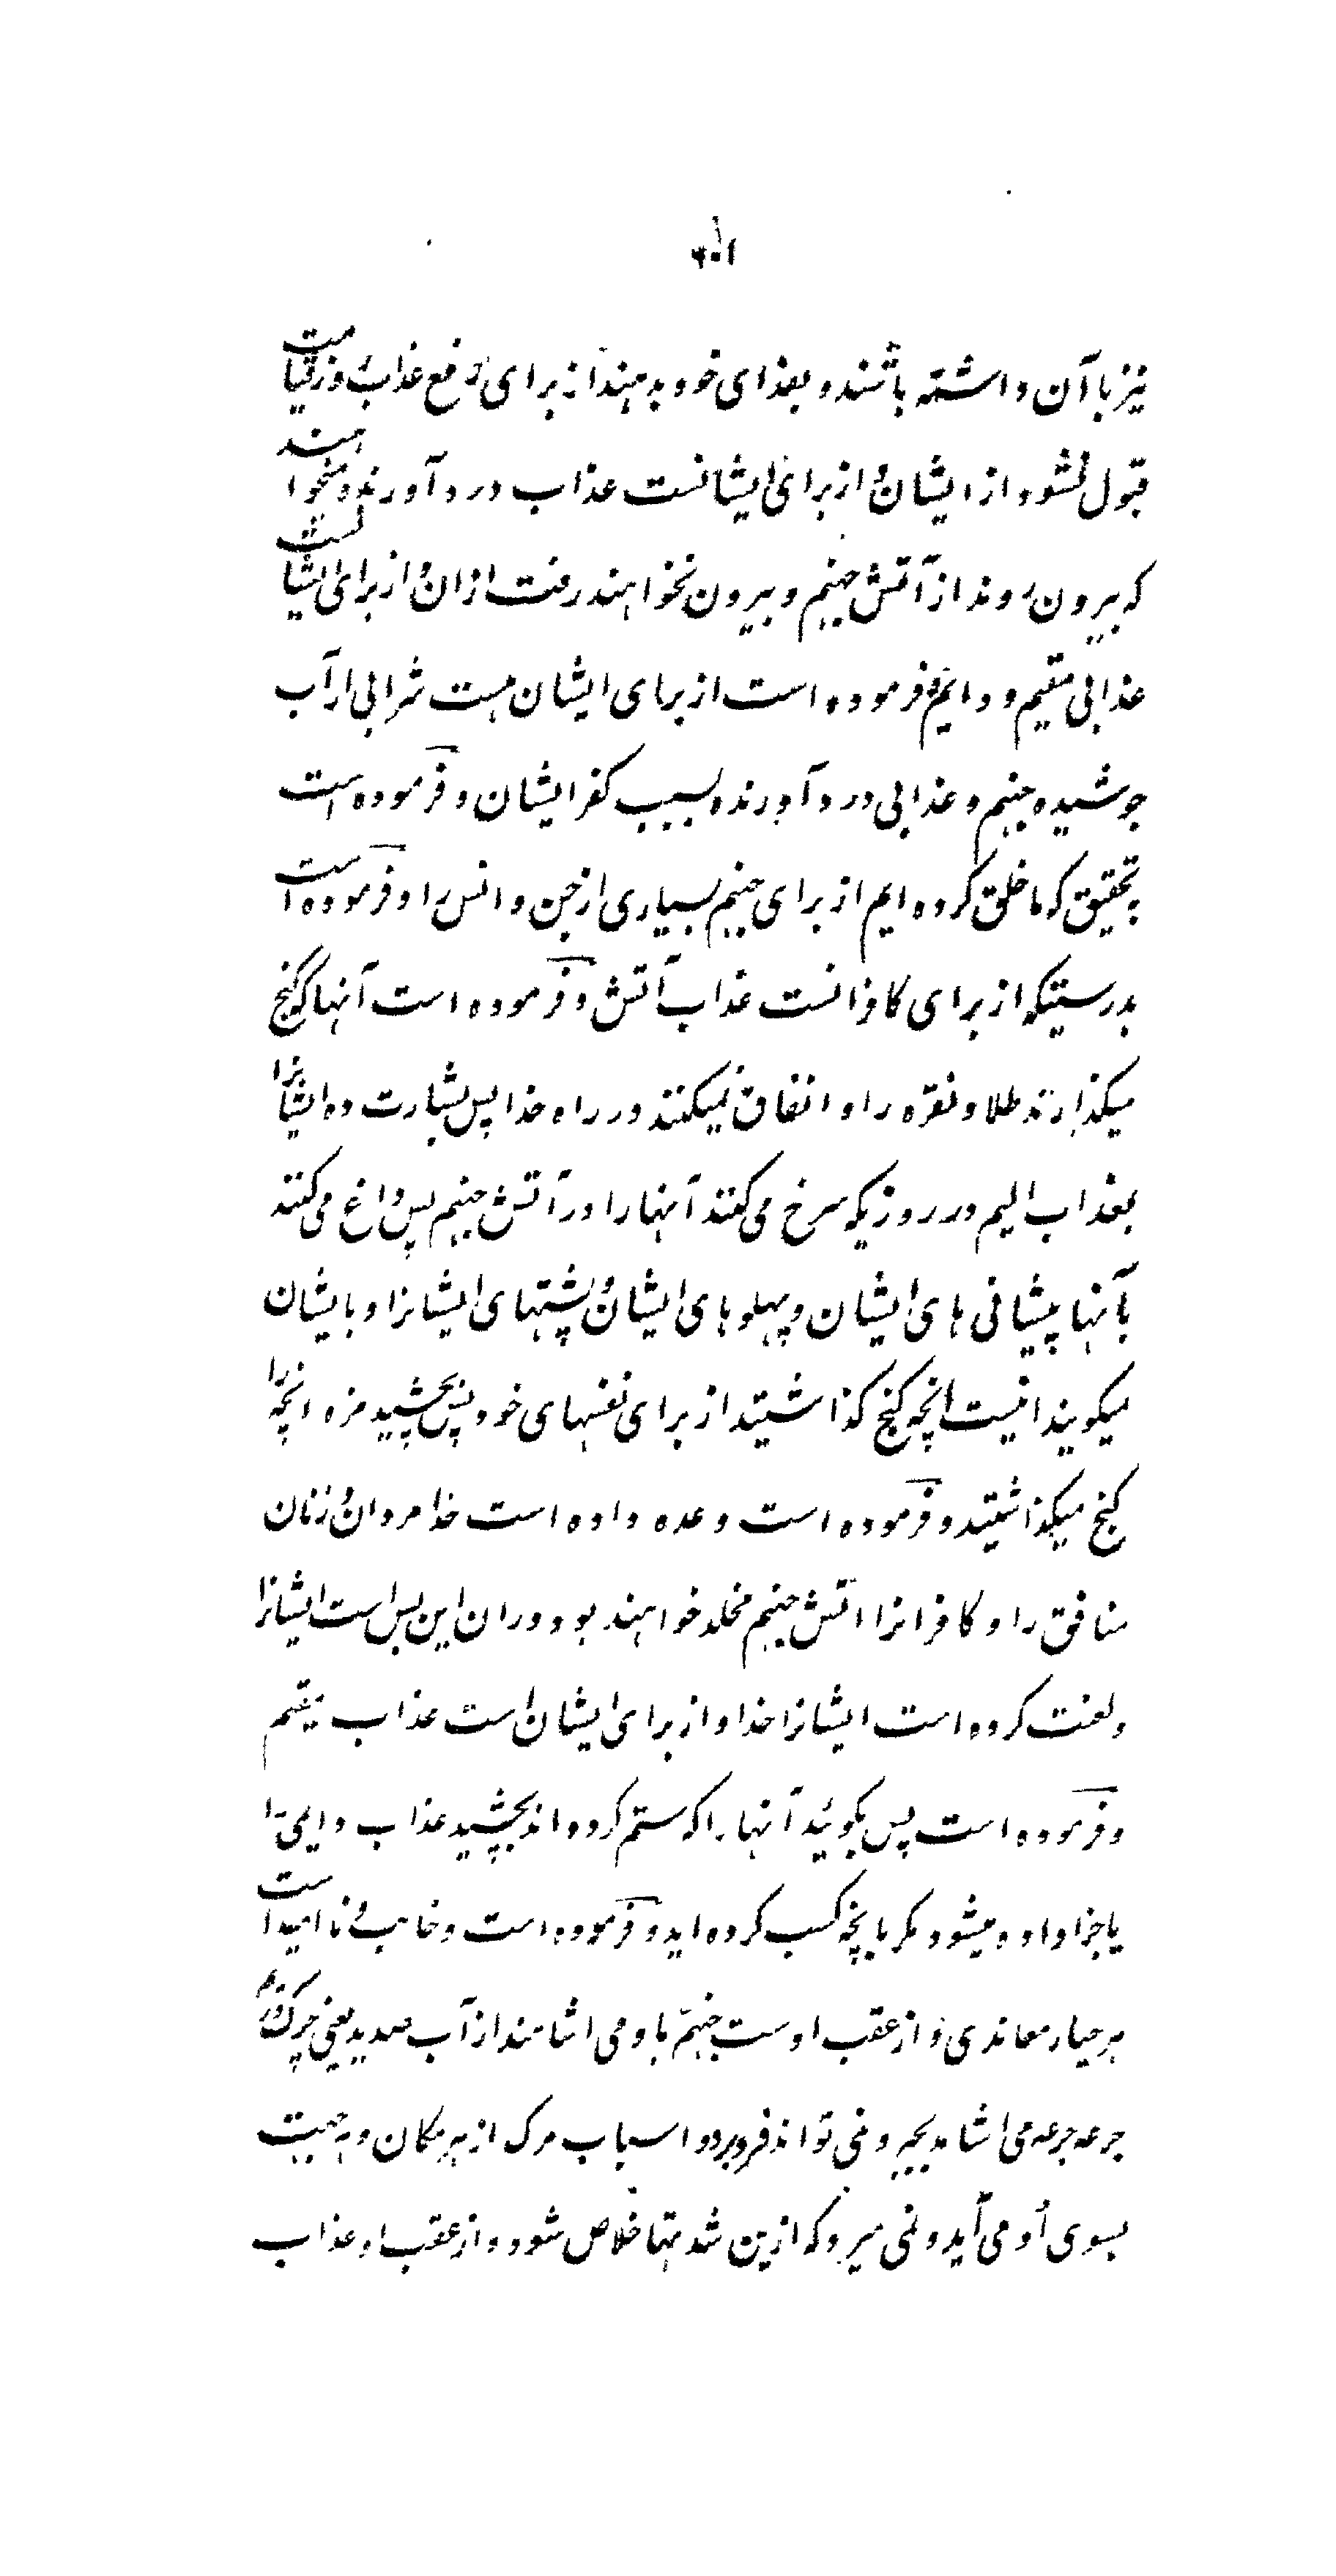 نیز با آن داشته باشند و بفدای خود بدهند از برای دفع عذاب روز قیامت
قبول نشود از ایشان و از برای ایشانست عذاب دردآورنده و میخواهند
که بیرون روند از آتش جهنم و بیرون نخواهند رفت از ان و از برای ایشانست
عذابی مقیم و دایم و فرموده است از برای ایشان هست شرابی از آب
جوشیده جهنم و عذابی دردآورنده بسبب کفر ایشان و فرموده است
بتحقیق که ما خلق کرده ایم از برای جهنم بسیاری از جن و انس را و فرموده است
بدرستیکه از برای کافرانست عذاب آتش و فرموده است آنها که گنج
میگذارند طلا و نقره را و انفاق نمیکنند در راه خدا پس بشارت ده ایشانرا
بعذاب الیم در روزیکه سرخ می کنند آنها را در آتش جهنم پس داغ می کنند
بآنها پیشانی های ایشان و پهلوهای ایشان و پشتهای ایشانرا و بایشان
میگویند اینست انچه گنج گذاشتید از برای نفسهای خود پس بچشید مزه انچه را
گنج میگذاشتید و فرموده است وعده داده است خدا مردان و زنان
منافق را و کافرانرا اتش جهنم مخلد خواهند بود دران این بس است ایشانرا
و لعنت کرده است ایشانرا خدا و از برای ایشان است عذاب مقیم
و فرموده است پس بگوئید آنها را که ستم کرده اند بچشید عذاب دایمی را
یا جزا داده میشود مگر بانچه کسب کرده اید و فرموده است و خایب و ناامید است
هر جبار معاندی و از عقب اوست جهنم باو می اشامند از آب صدید یعنی چرک و ریم
جرعه جرعه می اشامد بجبر و نمی تواند فرو برد و اسباب مرگ از هر مکان و هر جهت
بسوی او می آید و نمی میرد که ازین شدتها خلاص شود و از عقب او عذاب